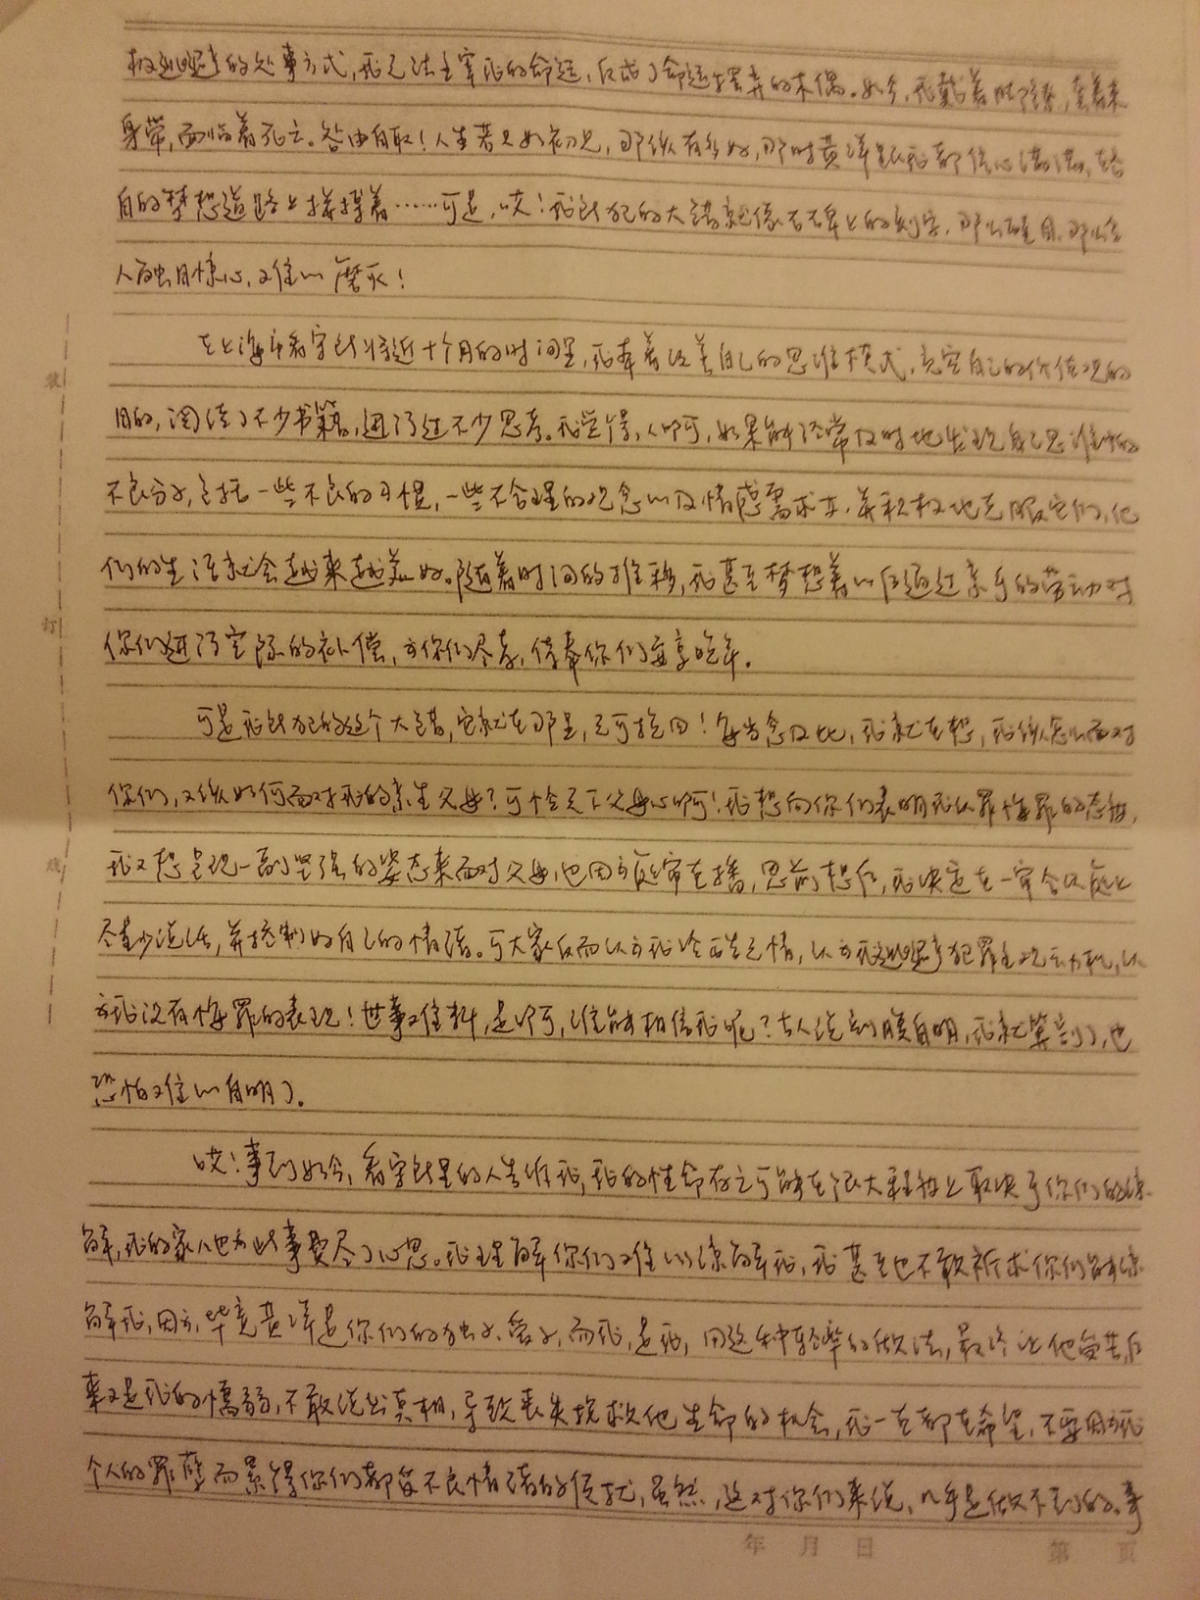 极端的处事方式，我无法主宰我的命运，反成了命运摆弄的木偶。如今，我戴着脚镣，套着束
身带，面临着死亡。咎由自取！人生若只如初见，那该有多好，那时黄洋跟我都信心满满，在各
自的梦想道路上拼搏着……可是，哎！我所犯的大错就像石碑上的刻字，那么醒目，那么令
人触目惊心，又难以磨灭！
在上海市看守所将近十个月的时间里，我奉着改善自己的思维模式，充实自己的价值观的
目的，阅读了不少书籍，进行过不少思考。我觉得，人啊，如果能经常及时地发现自己思维中的
不良分子，包括一些不良的习惯，一些不合理的观念以及情感需求等，并积极地克服它们，他
们的生活就会越来越美好。随着时间的推移，我甚至梦想着以后通过亲手的劳动对
你们进行实际的补偿，为你们尽孝，侍奉你们安享晚年。
可是我所犯的这个大错，它就在那里，无可挽回！每当念及此，我就在想，我该怎么面对
你们，又该如何面对我的亲生父母？可怜天下父母心啊！我想向你们表明我认罪悔罪的态度，
我又想呈现一副坚强的姿态来面对父母，也因为庭审直播，思前想后，我决定在一审公开庭上
尽量少说话，并控制好自己的情绪。可大家反而认为我冷酷无情，认为我犯罪主观动机，认
为我没有悔罪的表现！世事难料，是啊，谁能相信我呢？古人说剖腹自明，我就算剖了，也
恐怕难以自明了。
哎！事到如今，看守所里的人告诉我，我的性命存亡可能在很大程度上取决于你们的谅
解，我的家人也为此事费尽了心思。我理解你们难以谅解我，我甚至也不敢祈求你们能谅
解我，因为，毕竟黄洋是你们的独子、爱子，而我，是我，用这种轻率的做法，最终让他受苦，后
来又是我的懦弱，不敢说出真相，导致丧失挽救他生命的机会，我一直都在希望，不要因为我
个人的罪孽而累得你们都受不良情绪的侵扰，虽然，这对你们来说，几乎是做不到的。
年 月 日 第 页
装
订
线